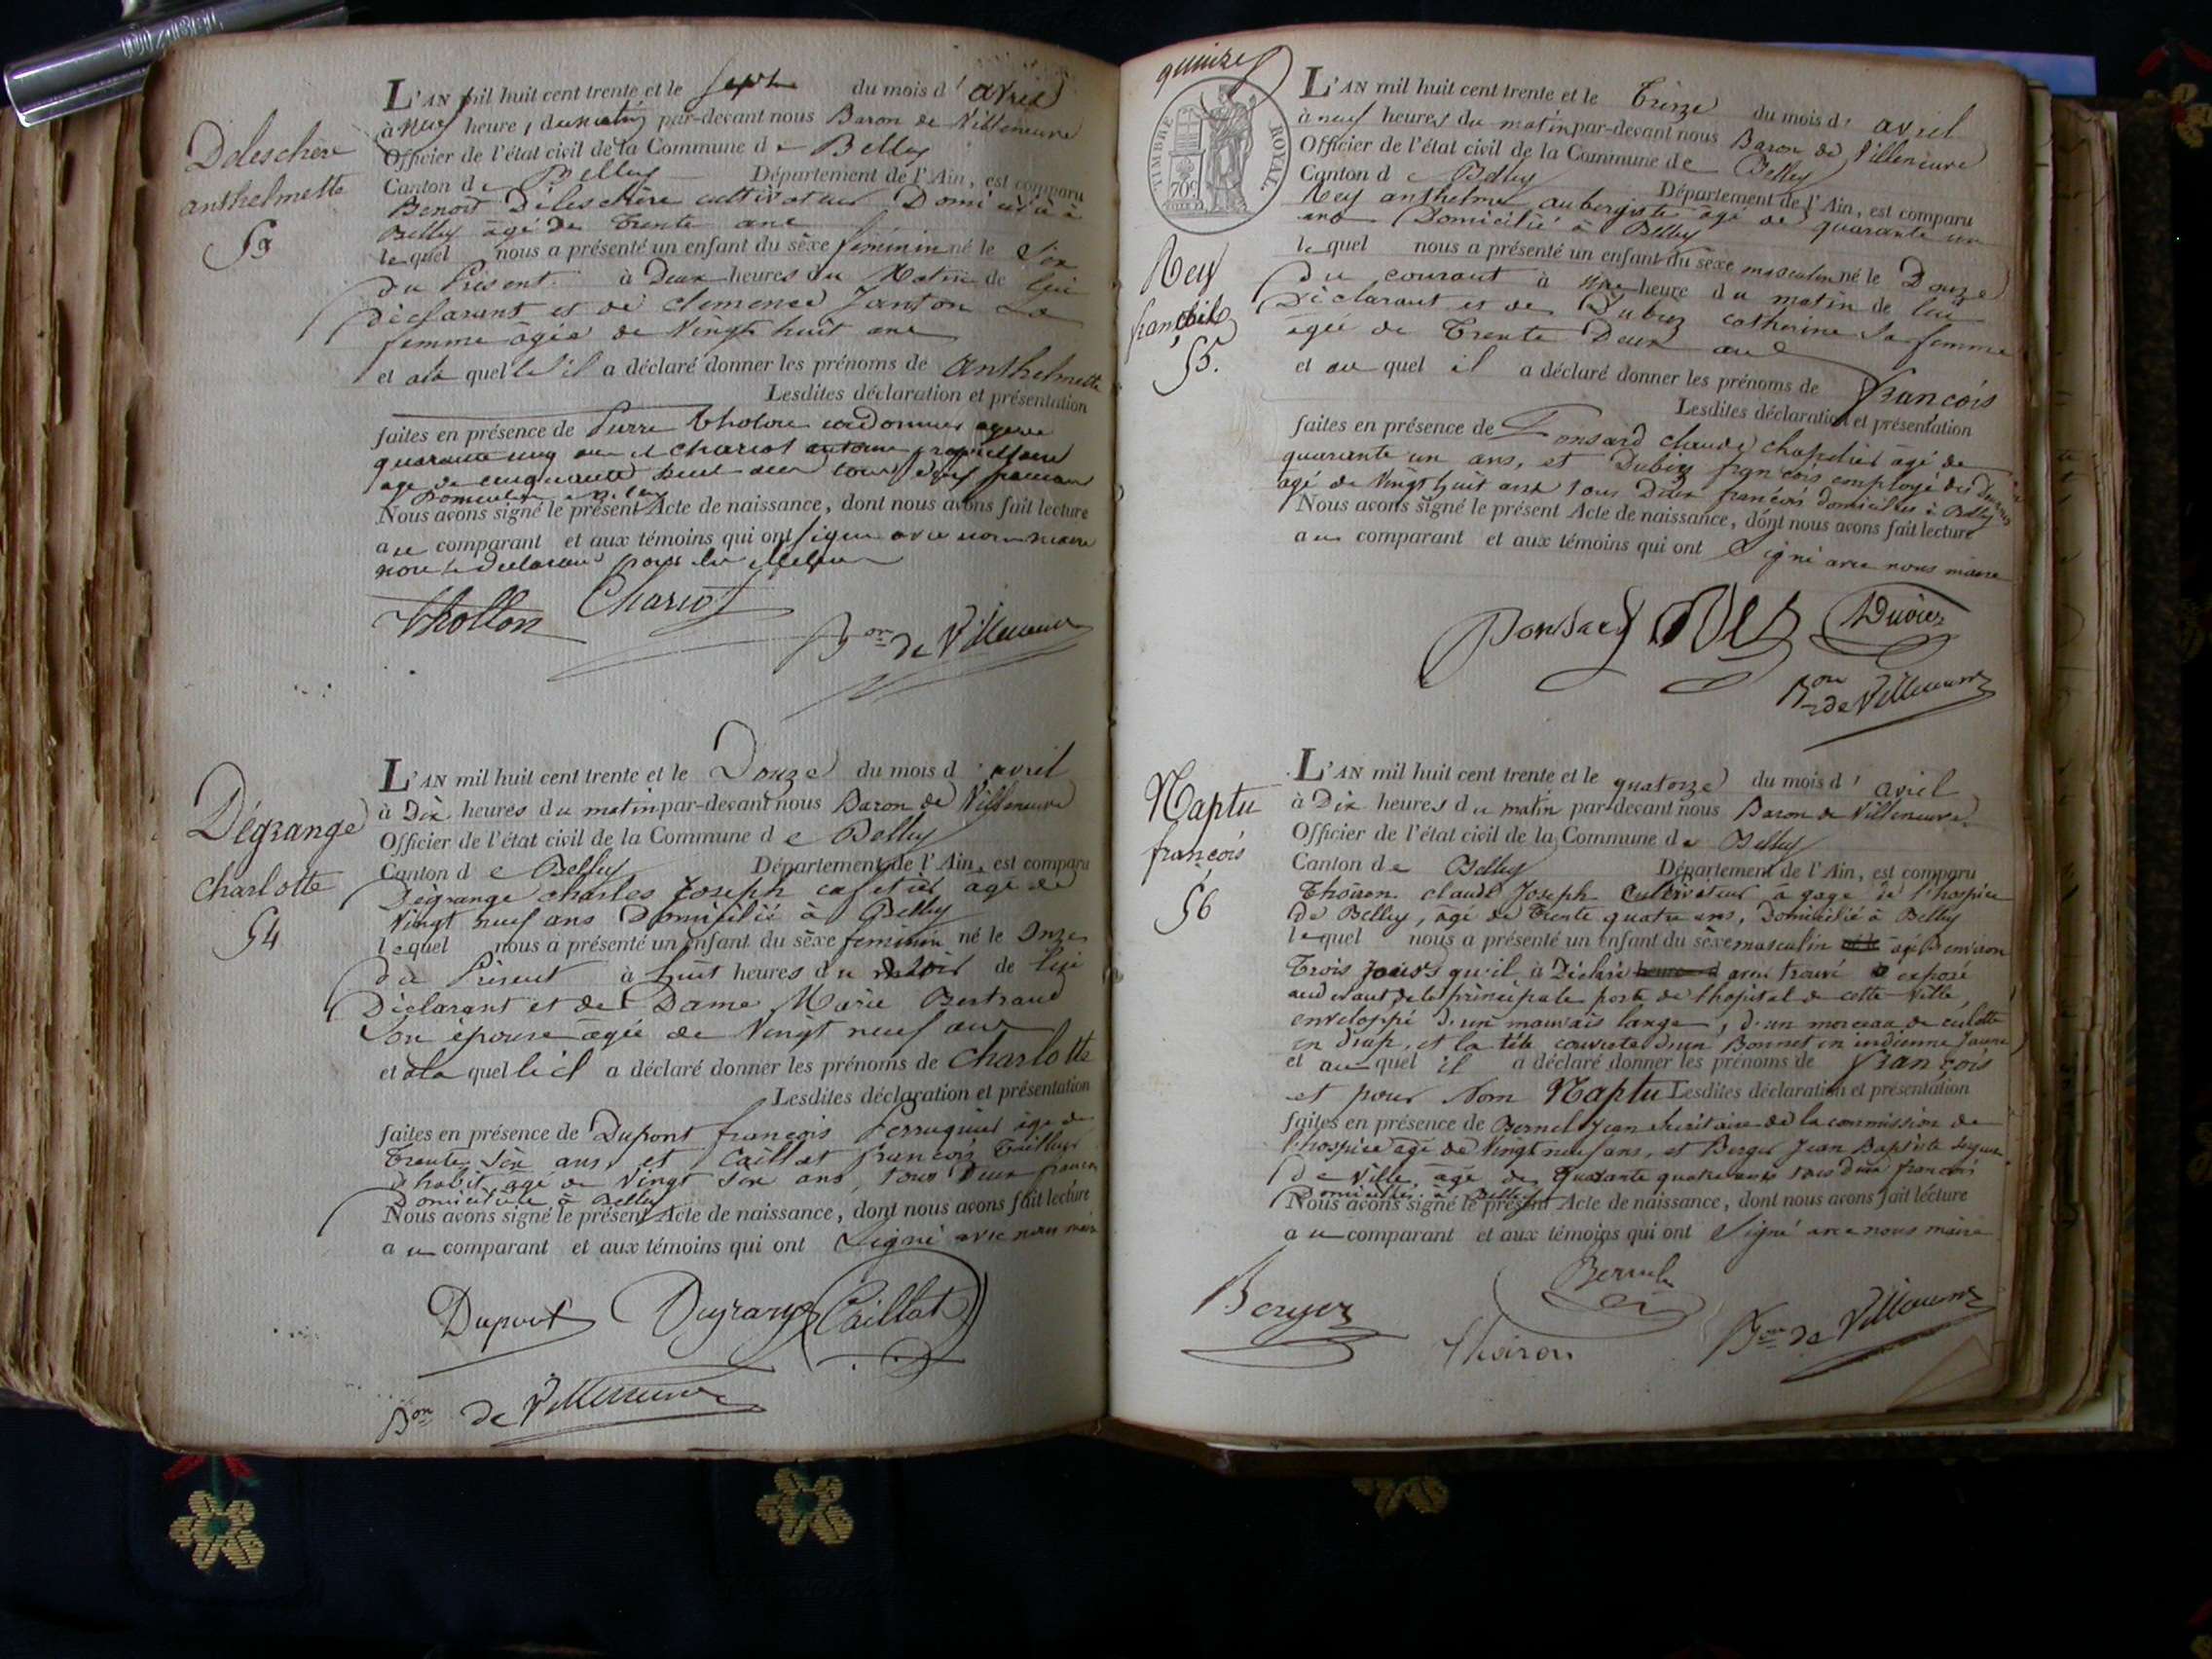 Deleschère
anthelmette
53
L'AN mil huit cent trente et le sept du mois d' avril
à neuf heure, du matin par-devant nous Baron de Villeneuve
Officier de l'état civil de la Commune de Belley
Canton de Belley Département de l'Ain, est comparu
Benoit Deleschère cultivateur Domicilié à
Belley âgé de trente ans
lequel nous a présenté un enfant du sèxe féminin né le Six
du Présent à Deux heures du Matin de lui
déclarant et de Clémence Janton Sa
femme âgée de Vingt huit ans
et à la quelle il a déclaré donner les prénoms de Anthelmette
Lesdites déclaration et présentation
faites en présence de Pierre tholon cordonnier agé de
quarante cinq ans et Chariot antoine propriétaire
agé de cinquante huit ans tous deux francais
Domiciliés a Belley
Nous avons signé le présent Acte de naissance, dont nous avons fait lecture
au comparant et aux témoins qui ont signé avec nous maire
non le déclarant pour
Thollon Chariot
Bon de Villeneuve
Dégrange
Charlotte
54
L'AN mil huit cent trente et le Douze du mois d' avril
à Dix heures du matin par-devant nous Baron de Villeneuve
Officier de l'état civil de la Commune de Belley
Canton de Belley Département de l'Ain, est comparu
Dégrange charles Joseph cafetier âgé de
Vingt neuf ans Domicilié à Belley
lequel nous a présenté un enfant du sèxe féminin né le Onze
du Présent à huit heures du soir de lui
Déclarant et de Dame Marie Bertrand
Son épouse agée de Vingt neuf ans
et à la quelle il a déclaré donner les prénoms de Charlotte
Lesdites déclaration et présentation
faites en présence de Dupont françois Perruquier âgé de
trente six ans et Caillat francois Tailleur
d'habit, agé de Vingt Six ans, tous Deux francais
Domiciliés à Belley
Nous avons signé le présent Acte de naissance, dont nous avons fait lecture
au comparant et aux témoins qui ont Signé avec nous maire
Dupont Degrange Caillat
Bon de Villeneuve
quinze
TIMBRE ROYAL
70c
Rey
françois
55.
L'AN mil huit cent trente et le Treize du mois d' avril
à neuf heures du matin par-devant nous Baron de Villeneuve
Officier de l'état civil de la Commune de Belley
Canton de Belley Département de l'Ain, est comparu
Rey anthelme, aubergiste âgé de quarante un
ans Domicilié à Belley
lequel nous a présenté un enfant du sèxe masculin né le Douze
du courant à Une heure du matin de lui
Déclarant et de Dubiez catherine Sa femme
agée de Trente Deux ans
et au quel il a déclaré donner les prénoms de François
Lesdites déclaration et présentation
faites en présence de Ponsard claude chapelier agé de
quarante un ans, et Dubiez françois employé des
agé de Vingt huit ans tous Deux francois domiciliés à Belley
Nous avons signé le présent Acte de naissance, dont nous avons fait lecture
au comparant et aux témoins qui ont Signé avec nous maire
Ponsard Rey
Bon de Villeneuve
Naptu
françois
56
L'AN mil huit cent trente et le quatorze du mois d' avril
à Dix heures du matin par-devant nous Baron de Villeneuve
Officier de l'état civil de la Commune de Belley
Canton de Belley Département de l'Ain, est comparu
Thoiron claude Joseph Cultivateur à gage de l'hospice
de Belley, âgé de Trente quatre ans, Domicilié à Belley
lequel nous a présenté un enfant du sèxe masculin âgé d'environ
Trois Jours qu'il à Déclaré avoir trouvé exposé
au devant de la principale porte de l'hopital de cette Ville,
enveloppé d'un mauvais lange, d'un morceau de culotte
en drap, et la tête couverte d'un Bonnet en indienne Jaune
et au quel il a déclaré donner les prénoms de François
et pour Nom Naptu Lesdites déclaration et présentation
faites en présence de Jean secrétaire de la commission de
l'hospice agé de Vingt neuf ans, et Berger Jean Baptiste
de Ville, âgé de Quarante quatre ans tous deux francois
Domiciliés à Belley
Nous avons signé le présent Acte de naissance, dont nous avons fait lecture
au comparant et aux témoins qui ont Signé avec nous maire
Berger
Thoiron
Bon de Villeneuve